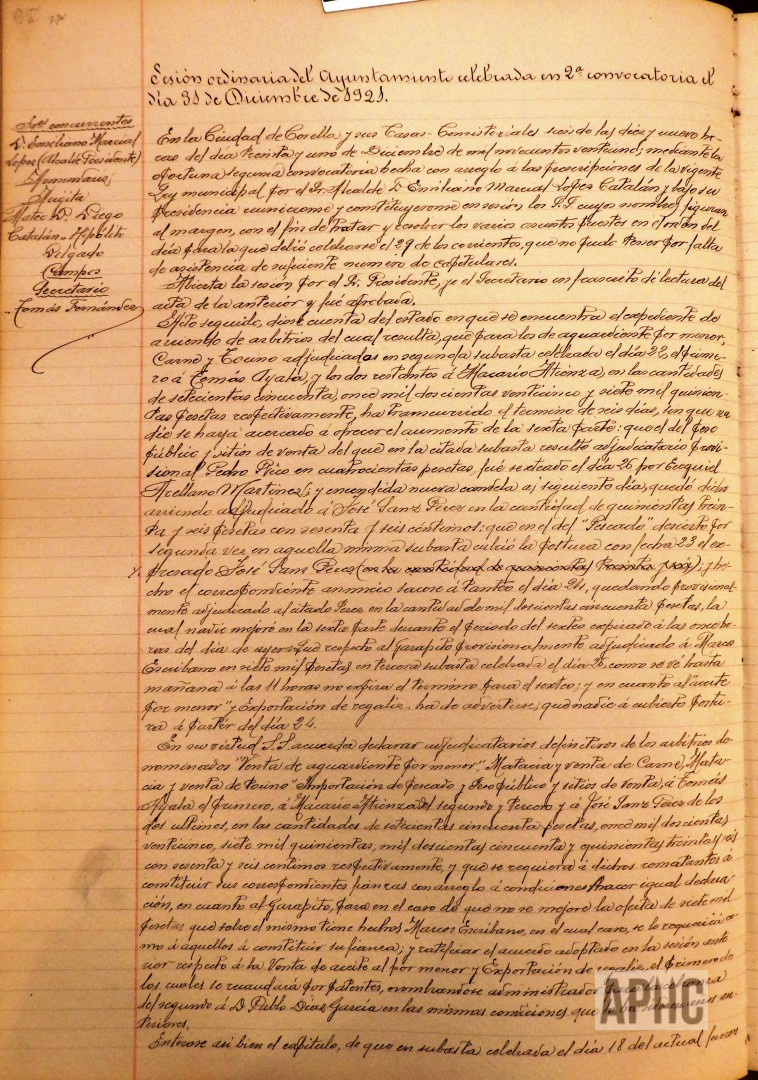 Sesión ordinaria del Ayuntamiento celebrada en 2ª convocatoria el
día 31 de Diciembre de 1921.
Sres concurrentes
D. Emiliano Marcial
Lopez (Alcalde Presidente)
Mateo D. Diego
Catalán Hipólito
Delgado
Campos
Secretario
Tomás Fernández
En la Ciudad de Corella y sus Casas Consistoriales siendo las diez y nueve ho-
ras del día treinta y uno de Diciembre de mil novecientos veintiuno; mediante la
oportuna segunda convocatoria hecha con arreglo á las prescripciones de la vigente
Ley municipal por el Sr. Alcalde D. Emiliano Marcial Lopez Catalán y bajo su
Presidencia reuniéronse y constituyeronse en sesión los S.S. cuyos nombres figuran
al margen, con el fin de tratar y resolver los varios asuntos puestos en el orden del
día para la que debió celebrarse el 29 de los corrientes, que no pudo tener por falta
de asistencia de suficiente numero de capitulares.
Abierta la sesión por el Sr. Presidente, yo el Secretario infrascrito dí lectura del
acta de la anterior y fué aprobada.
Acto seguido, diose cuenta del estado en que se encuentra el expediente de
arriendo de arbitrios del cual resulta, que para los de aguardiente por menor,
Carne y Tocino adjudicadas en segunda subasta celebrada el día 22, el prime-
ro á Tomás Ayala, y los dos restantes á Macario Atienza, en las cantidades
de setecientas cincuenta, once mil doscientas venticinco y siete mil quinien-
tas pesetas respectivamente, ha transcurrido el término de seis dias, sin que na-
die se haya acercado á ofrecer el aumento de la sexta parte: que el del peso
público y sitios de venta del que en la citada subasta resultó adjudicatario provi-
sional Pedro Rico en cuatrocientas pesetas, fué sexteado el día 26 por Ezequiel
Arellano Martínez; y encendida nueva candela al siguiente día, quedó dicho
arriendo adjudicado á José Sanz Perez en la cantidad de quinientas trein-
ta y seis pesetas con sesenta y seis céntimos: que en el del "Pescado" desierto por
segunda vez en aquella misma subasta cubrió la postura con fecha 23 el ex-
presado José Sanz Perez (en la cantidad de quinientas treinta y seis); y he-
cho el correspondiente anuncio sacose á tanteo el día 24, quedando provisional-
mente adjudicado al citado Perez en la cantidad de mil doscientas cincuenta pesetas, la
cual nadie mejoró en la sexta parte durante el periodo del sexteo expirado á las once ho-
ras del día de ayer: Que respecto al Garapito provisionalmente adjudicado á Marcos
Escribano en siete mil pesetas en tercera subasta celebrada el día, como se ve hasta
mañana á las 11 horas no expira el termino para el sexteo; y en cuanto al "aceite
por menor" y Exportación de regaliz, ha de advertirse, que nadie á cubierto postu-
ra á partir del día 24.
En su virtud S.S. acuerda declarar adjudicatarios definitivos de los arbitrios de-
nominados "Venta de aguardiente por menor" Matacia y venta de Carne, Mata-
cia y venta de tocino" Importación de pescado y Peso público y sitios de venta, á Tomás
Ayala el primero, á Macario Atienza del segundo y tercero y á José Sanz Perez de los
dos ultimos, en las cantidades de setecientas cincuenta pesetas, once mil doscientas
venticinco, siete mil quinientas, mil doscientas cincuenta y quinientas treinta y seis
con sesenta y seis centimos respectivamente, y que se requiera á dichos rematantes á
constituir sus correspondientes fianzas con arreglo á condiciones hacer igual declara-
ción, en cuanto al Garapito, para en el caso de que no se mejore la oferta de siete mil
pesetas que sobre el mismo tiene hechas Marcos Escribano, en el cual caso, se le requerirá co-
mo á aquellos á constituir su fianza; y ratificar el acuerdo adoptado en la sesión ante-
rior respecto á la Venta de aceite al por menor y Exportación de regaliz, el primero de
los cuales se recaudará por patentes, nombrandose administrador para la cobranza
del segundo á D. Pablo Diaz García en las mismas condiciones que
teriores.
Enterose asi bien el capítulo, de que en subasta celebrada el día 18 del actual fueron
APHC